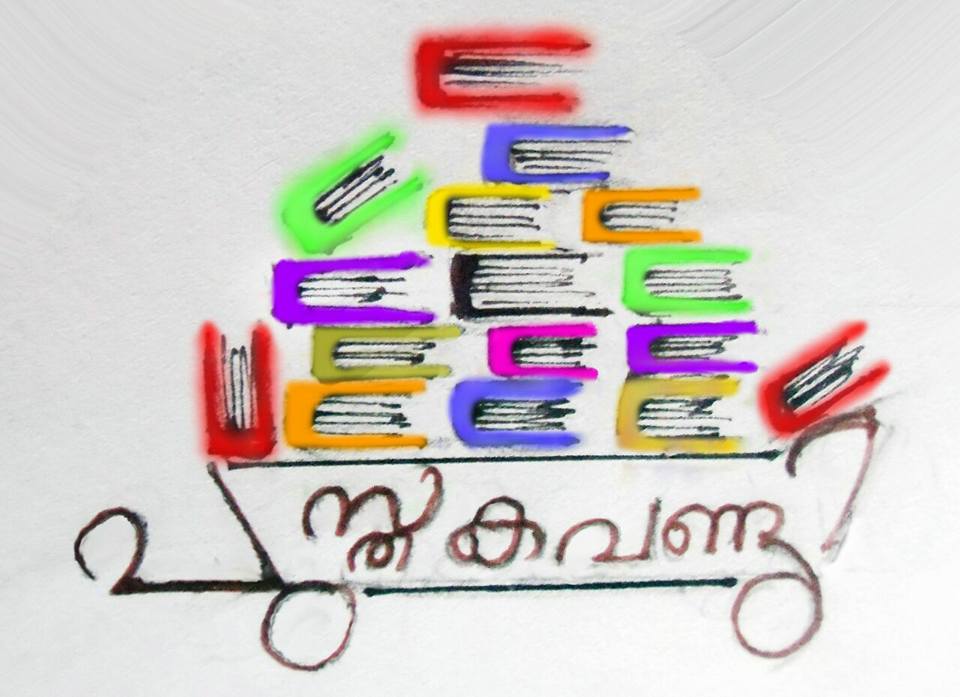 പുസ്തകവണ്ടി